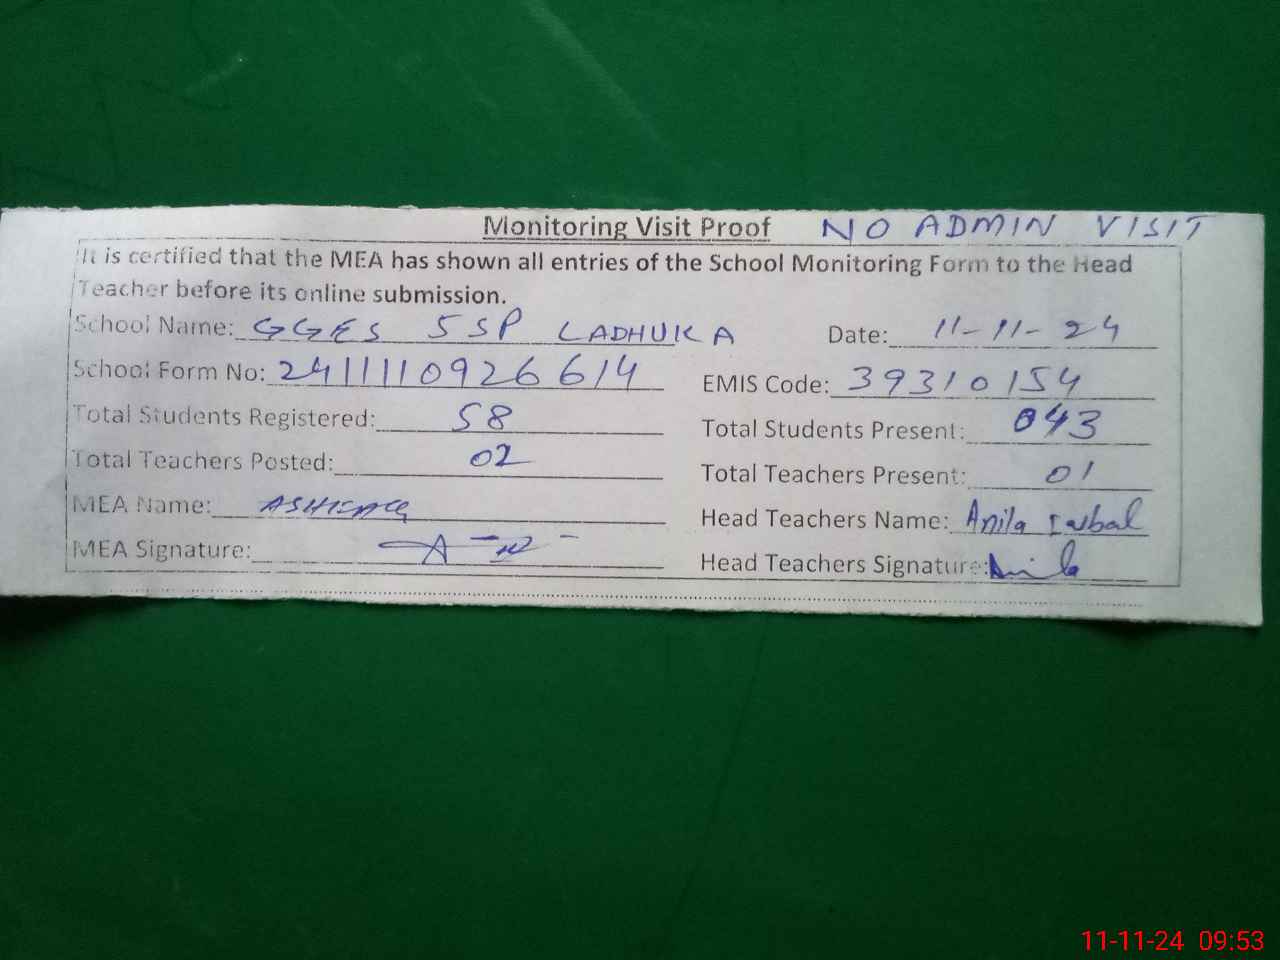 Monitoring Visit Proof NO ADMIN VISIT
It is certified that the MEA has shown all entries of the School Monitoring Form to the Head
Teacher before its online submission.
School Name: GGES 5SP LADHUKA Date: 11-11-24
School Form No: 2411110926614 EMIS Code: 39310154
Total Students Registered: 58 Total Students Present: 043
Total Teachers Posted: 02 Total Teachers Present: 01
MEA Name: Head Teachers Name: Anila Iqbal
MEA Signature: Head Teachers Signature:
11-11-24 09:53